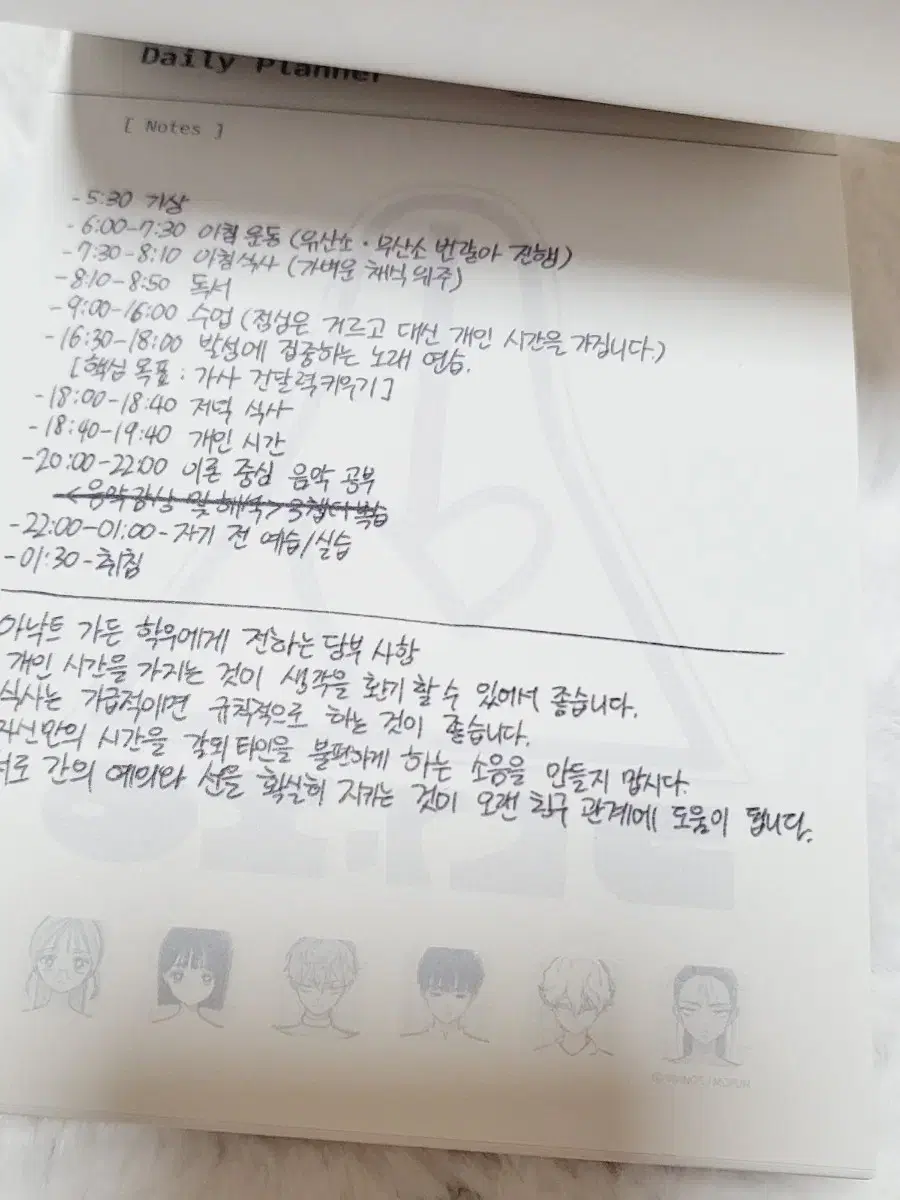 Daily Planner
[ Notes ]
-5:30 기상
-6:00-7:30 아침 운동 (유산소·무산소 번갈아 진행)
-7:30-8:10 아침식사 (가벼운 채식 위주)
-8:10-8:50 독서
-9:00-16:00 수업 (점심은 거르고 대신 개인 시간을 가집니다.)
-16:30-18:00 발성에 집중하는 노래 연습.
[핵심 목표 : 가사 전달력 키우기]
-18:00-18:40 저녁 식사
-18:40-19:40 개인 시간
-20:00-22:00 이론 중심 음악 공부
<음악 감상 및 해석> 3챕터 복습
-22:00-01:00-자기 전 예습/실습
-01:30-취침
아낙트 가든 학우에게 전하는 당부 사항
개인 시간을 가지는 것이 생각을 환기 할 수 있어서 좋습니다.
식사는 가급적이면 규칙적으로 하는 것이 좋습니다.
자신만의 시간을 갖되 타인을 불편하게 하는 소음을 만들지 맙시다.
서로 간의 예의와 선을 확실히 지키는 것이 오랜 친구 관계에 도움이 됩니다.